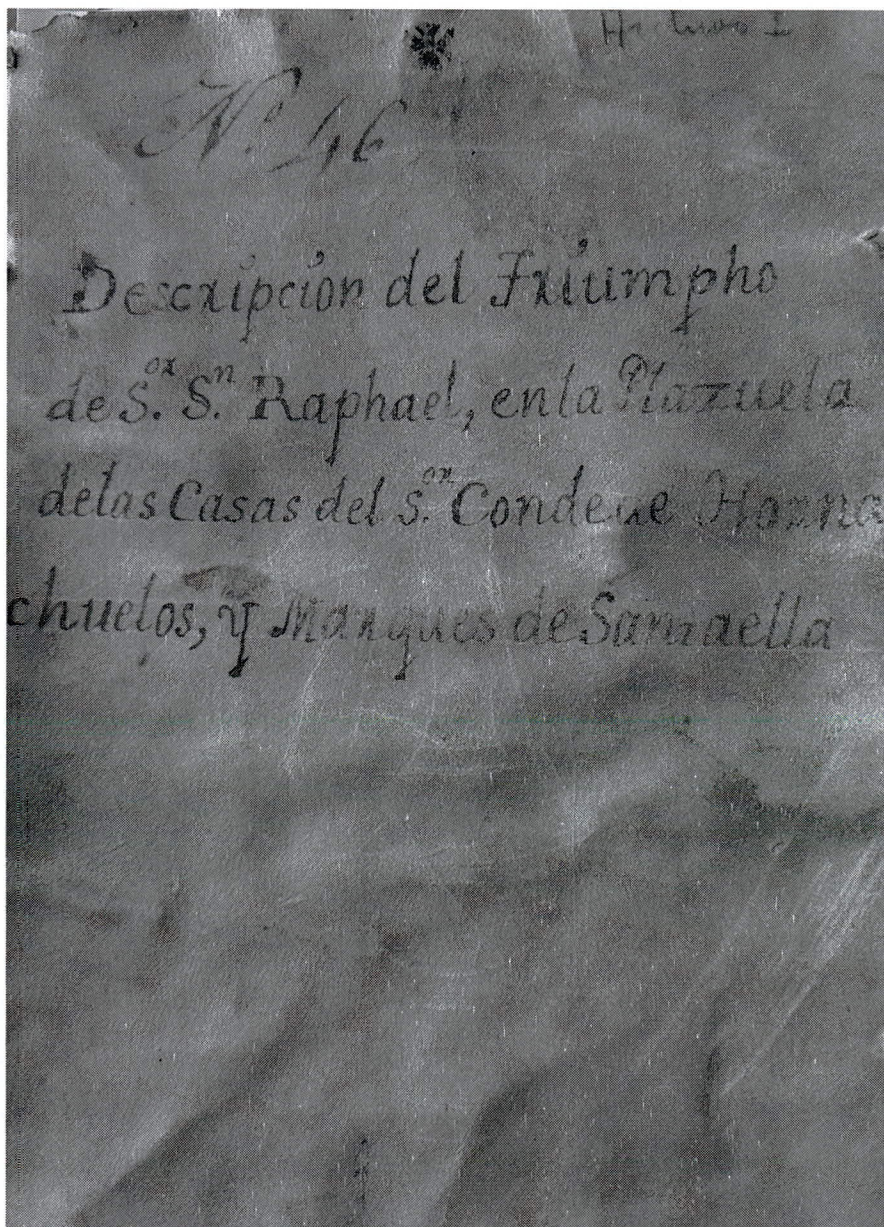 N.º 46
Descripcion del Triumpho
de S.ᵒʳ S.ⁿ Raphael, en la Plazuela
delas Casas del s.ᵒʳ Conde de Horna
chuelos, y Marques de Santaella